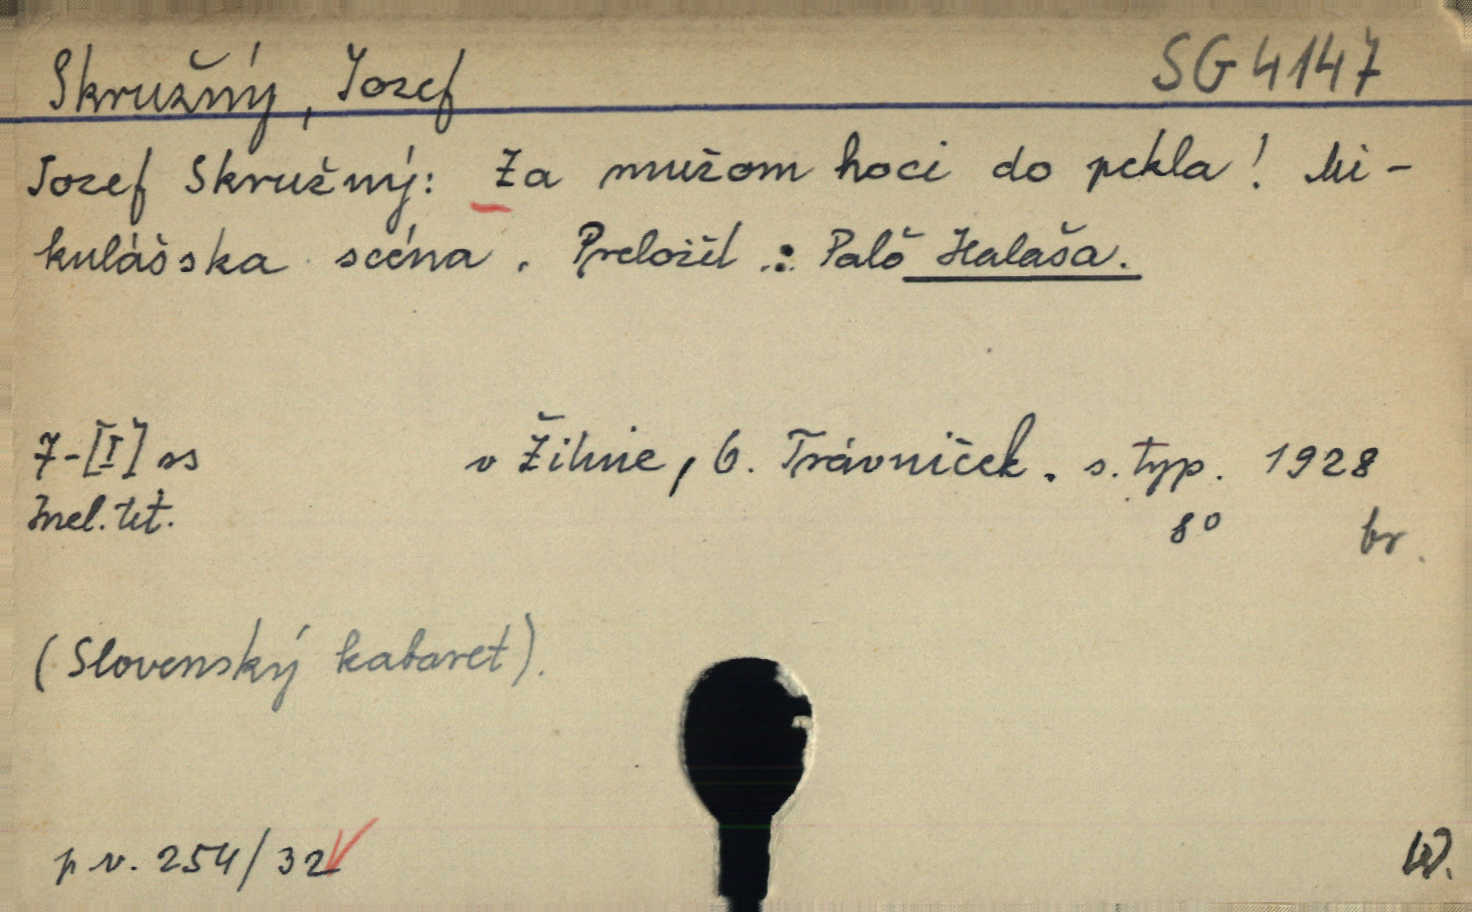 Skružný, Jozef SG 4147
Jozef Skružný: Za mužom hoci do pekla! Mi-
kulášska scéna. Preložil: Palő Halaša.
7-[I] ss v Žiline, G. Trávniček. s. typ. 1928
Incl. tit. 8° br.
(Slovenský kabaret).
p. v. 254/32